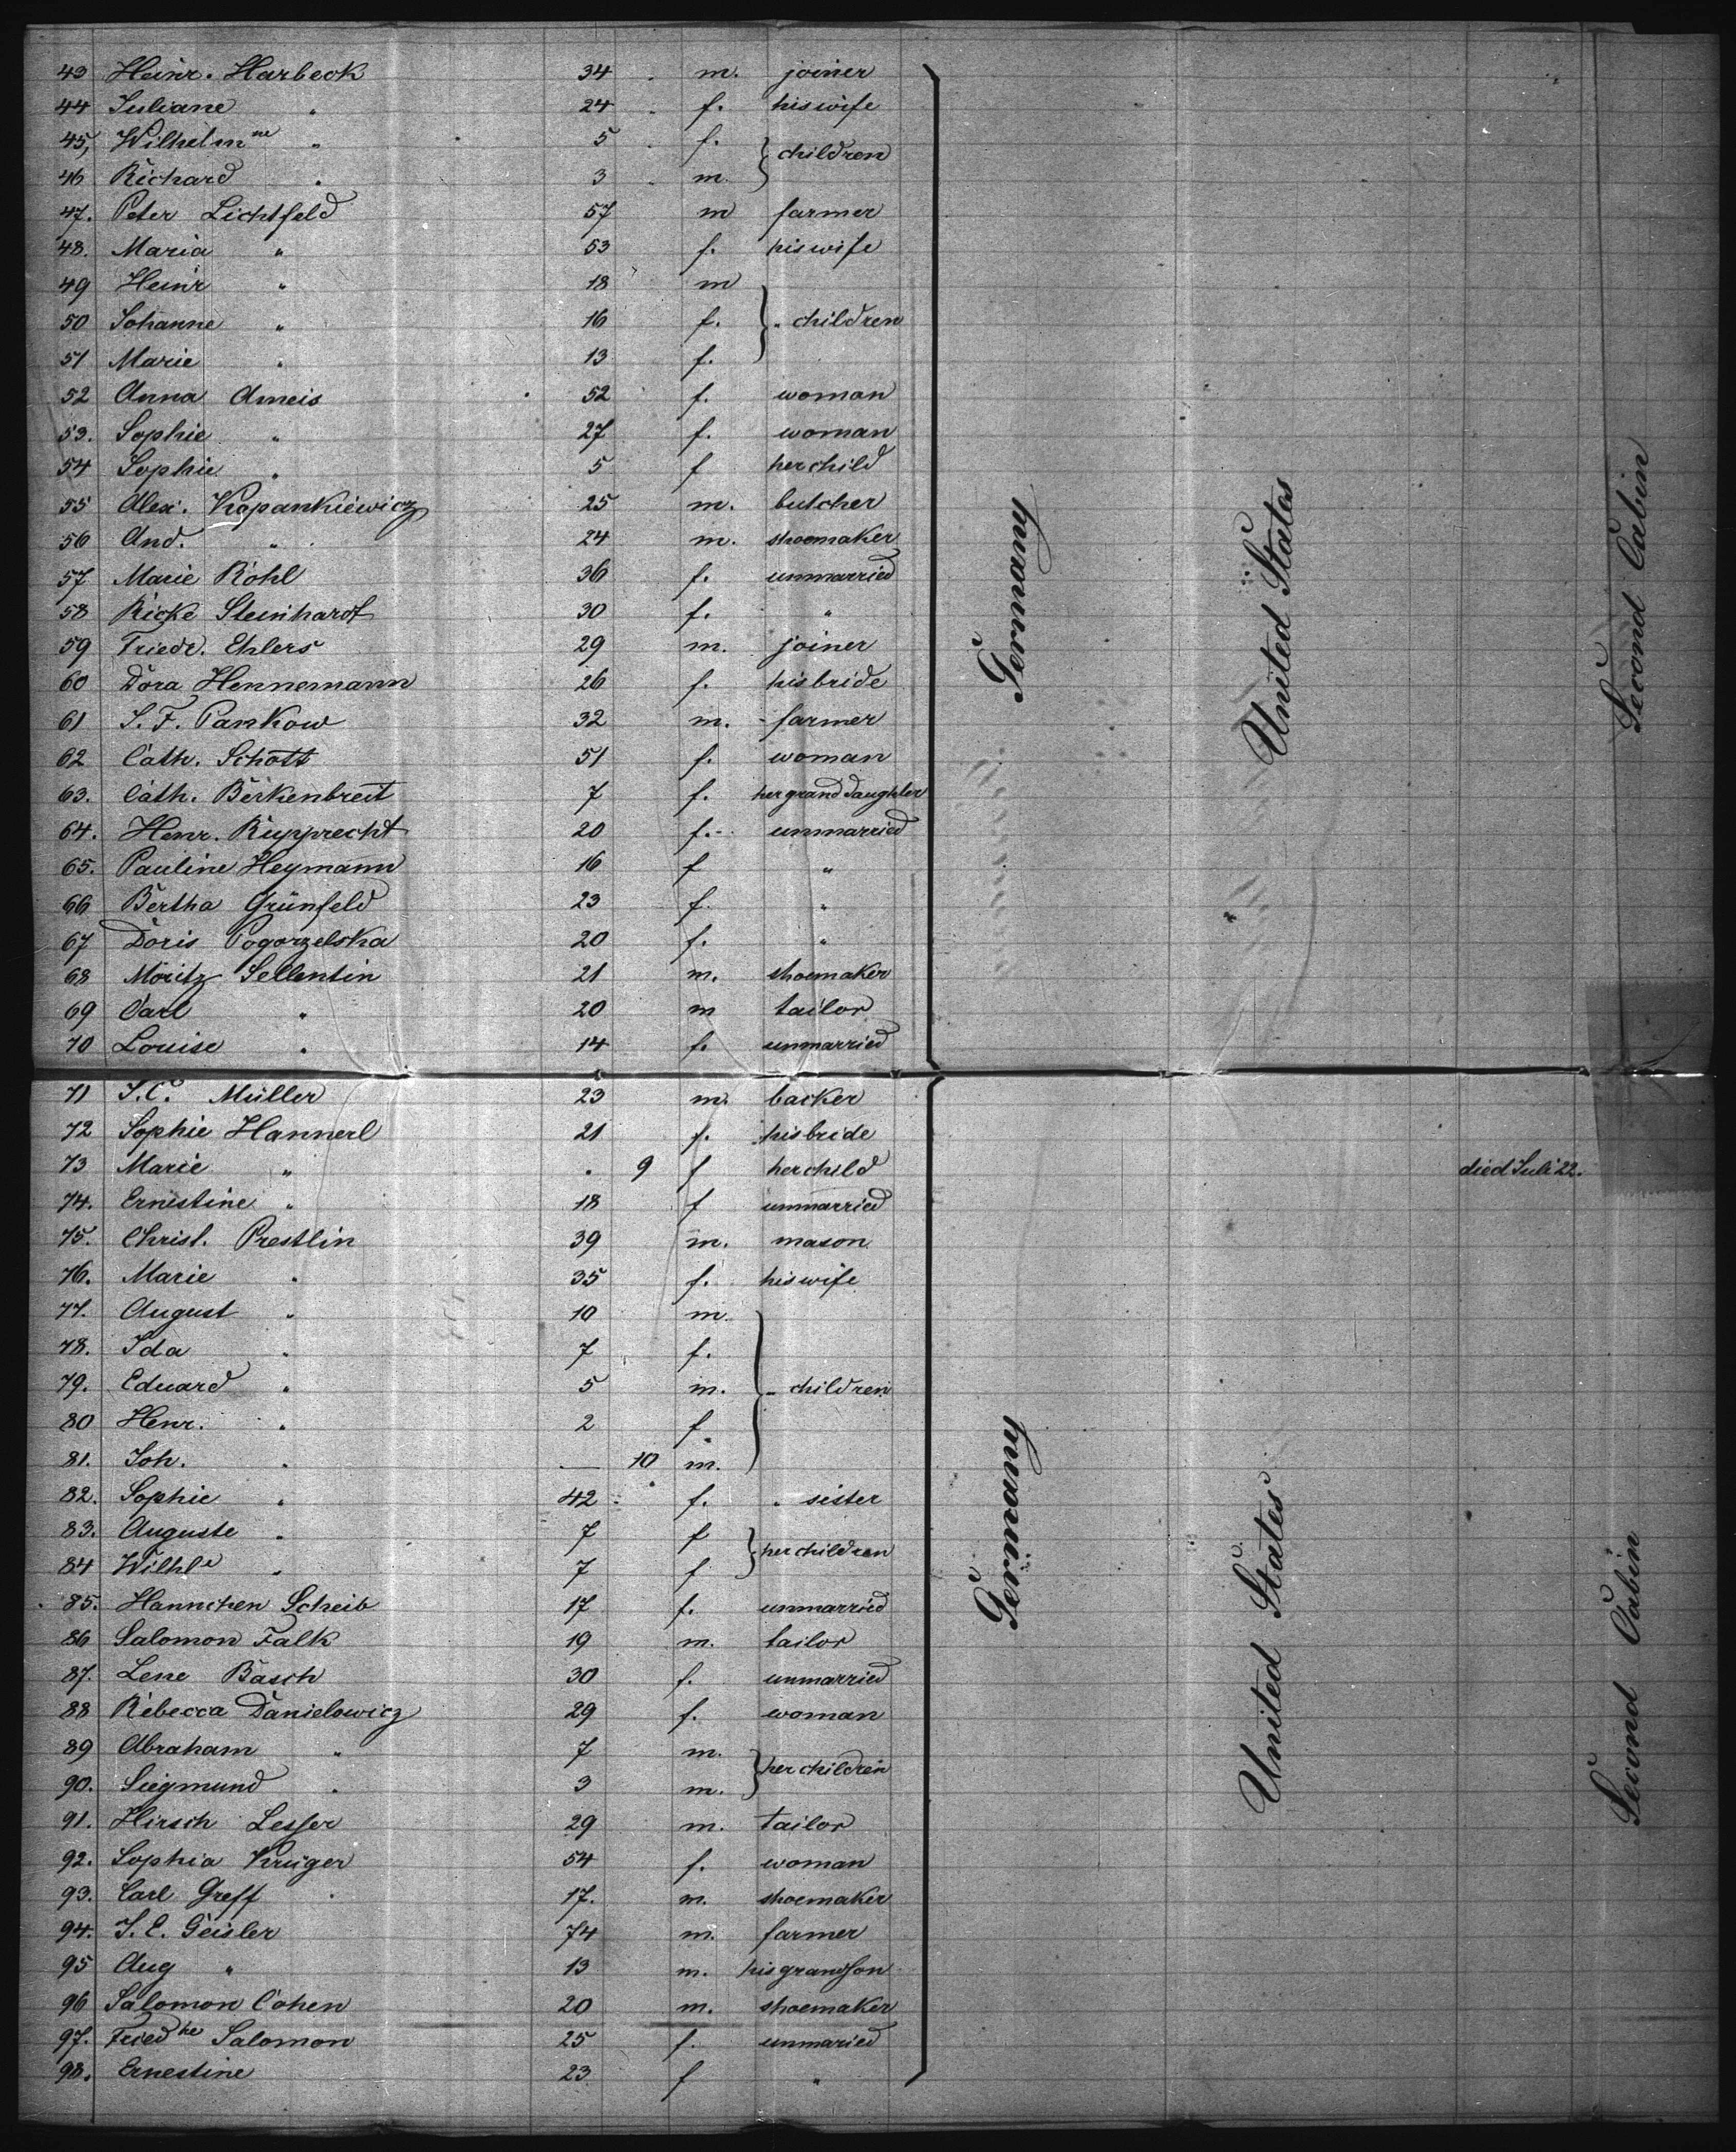 43 Heinr. Harbeck 34 m. joiner
44 Juliane " 24 f. his wife
45, Wilhelmne " 5 f. } children
46 Richard " 3 m.
47. Peter Lichtfeld 57 m farmer
48. Maria " 53 f. his wife
49 Heinr " 18 m
50 Johanne " 16 f. } " children
51 Marie " 13 f.
52 Anna Ameis 52 f. woman
53. Sophie " 27 f. woman
54 Sophie " 5 f her child
55 Alex. Kopankiewicz 25 m. butcher
56 And. " 24 m. shoemaker
57 Marie Röhl 36 f. unmarried
58 Ricke Steinhardt 30 f. "
59 Friedr. Ehlers 29 m. joiner
60 Dora Hennemann 26 f. his bride
61 J. F. Pankow 32 m. farmer
62 Cath. Schött 51 f. woman
63. Cath. Berkenbreit 7 f. her grand daughter
64. Henr. Rupprecht 20 f. unmarried
65. Pauline Heymann 16 f "
66 Bertha Grünfeld 23 f. "
67 Doris Pogorzelska 20 f. "
68 Moritz Sellentin 21 m. shoemaker
69 Carl " 20 m tailor
70 Louise " 14 f. unmarried
Germany
United States
Second Cabin
71 J. C. Müller 23 m. backer
72 Sophie Hannerl 21 f. his bride
73 Marie " " 9 f her child died Juli 22.
74. Ernestine " 18 f unmarried
75. Christ. Prestlin 39 m. mason
76. Marie " 35 f. his wife
77. August " 10 m.
78. Ida " 7 f.
79. Eduard " 5 m. } " children
80 Henr. " 2 f.
81. Joh. " — 10 m.
82. Sophie " 42 f. " sister
83. Auguste " 7 f } her children
84 Wilhle " 7 f
85. Hannchen Scheib 17 f. unmarried
86 Salomon Falk 19 m. tailor
87. Lene Basch 30 f. unmarried
88 Rebecca Danielowicz 29 f. woman
89 Abraham " 7 m. } her children
90. Siegmund " 3 m.
91. Hirsch Lesser 29 m. tailor
92. Sophia Krüger 54 f. woman
93. Carl Greff 17. m. shoemaker
94. J. E. Geisler 74 m. farmer
95 Aug " 13 m. his grandson
96 Salomon Cohen 20 m. shoemaker
97. Friedke Salomon 25 f. unmaried
98. Ernestine 23 f "
Germany
United States
Second Cabin